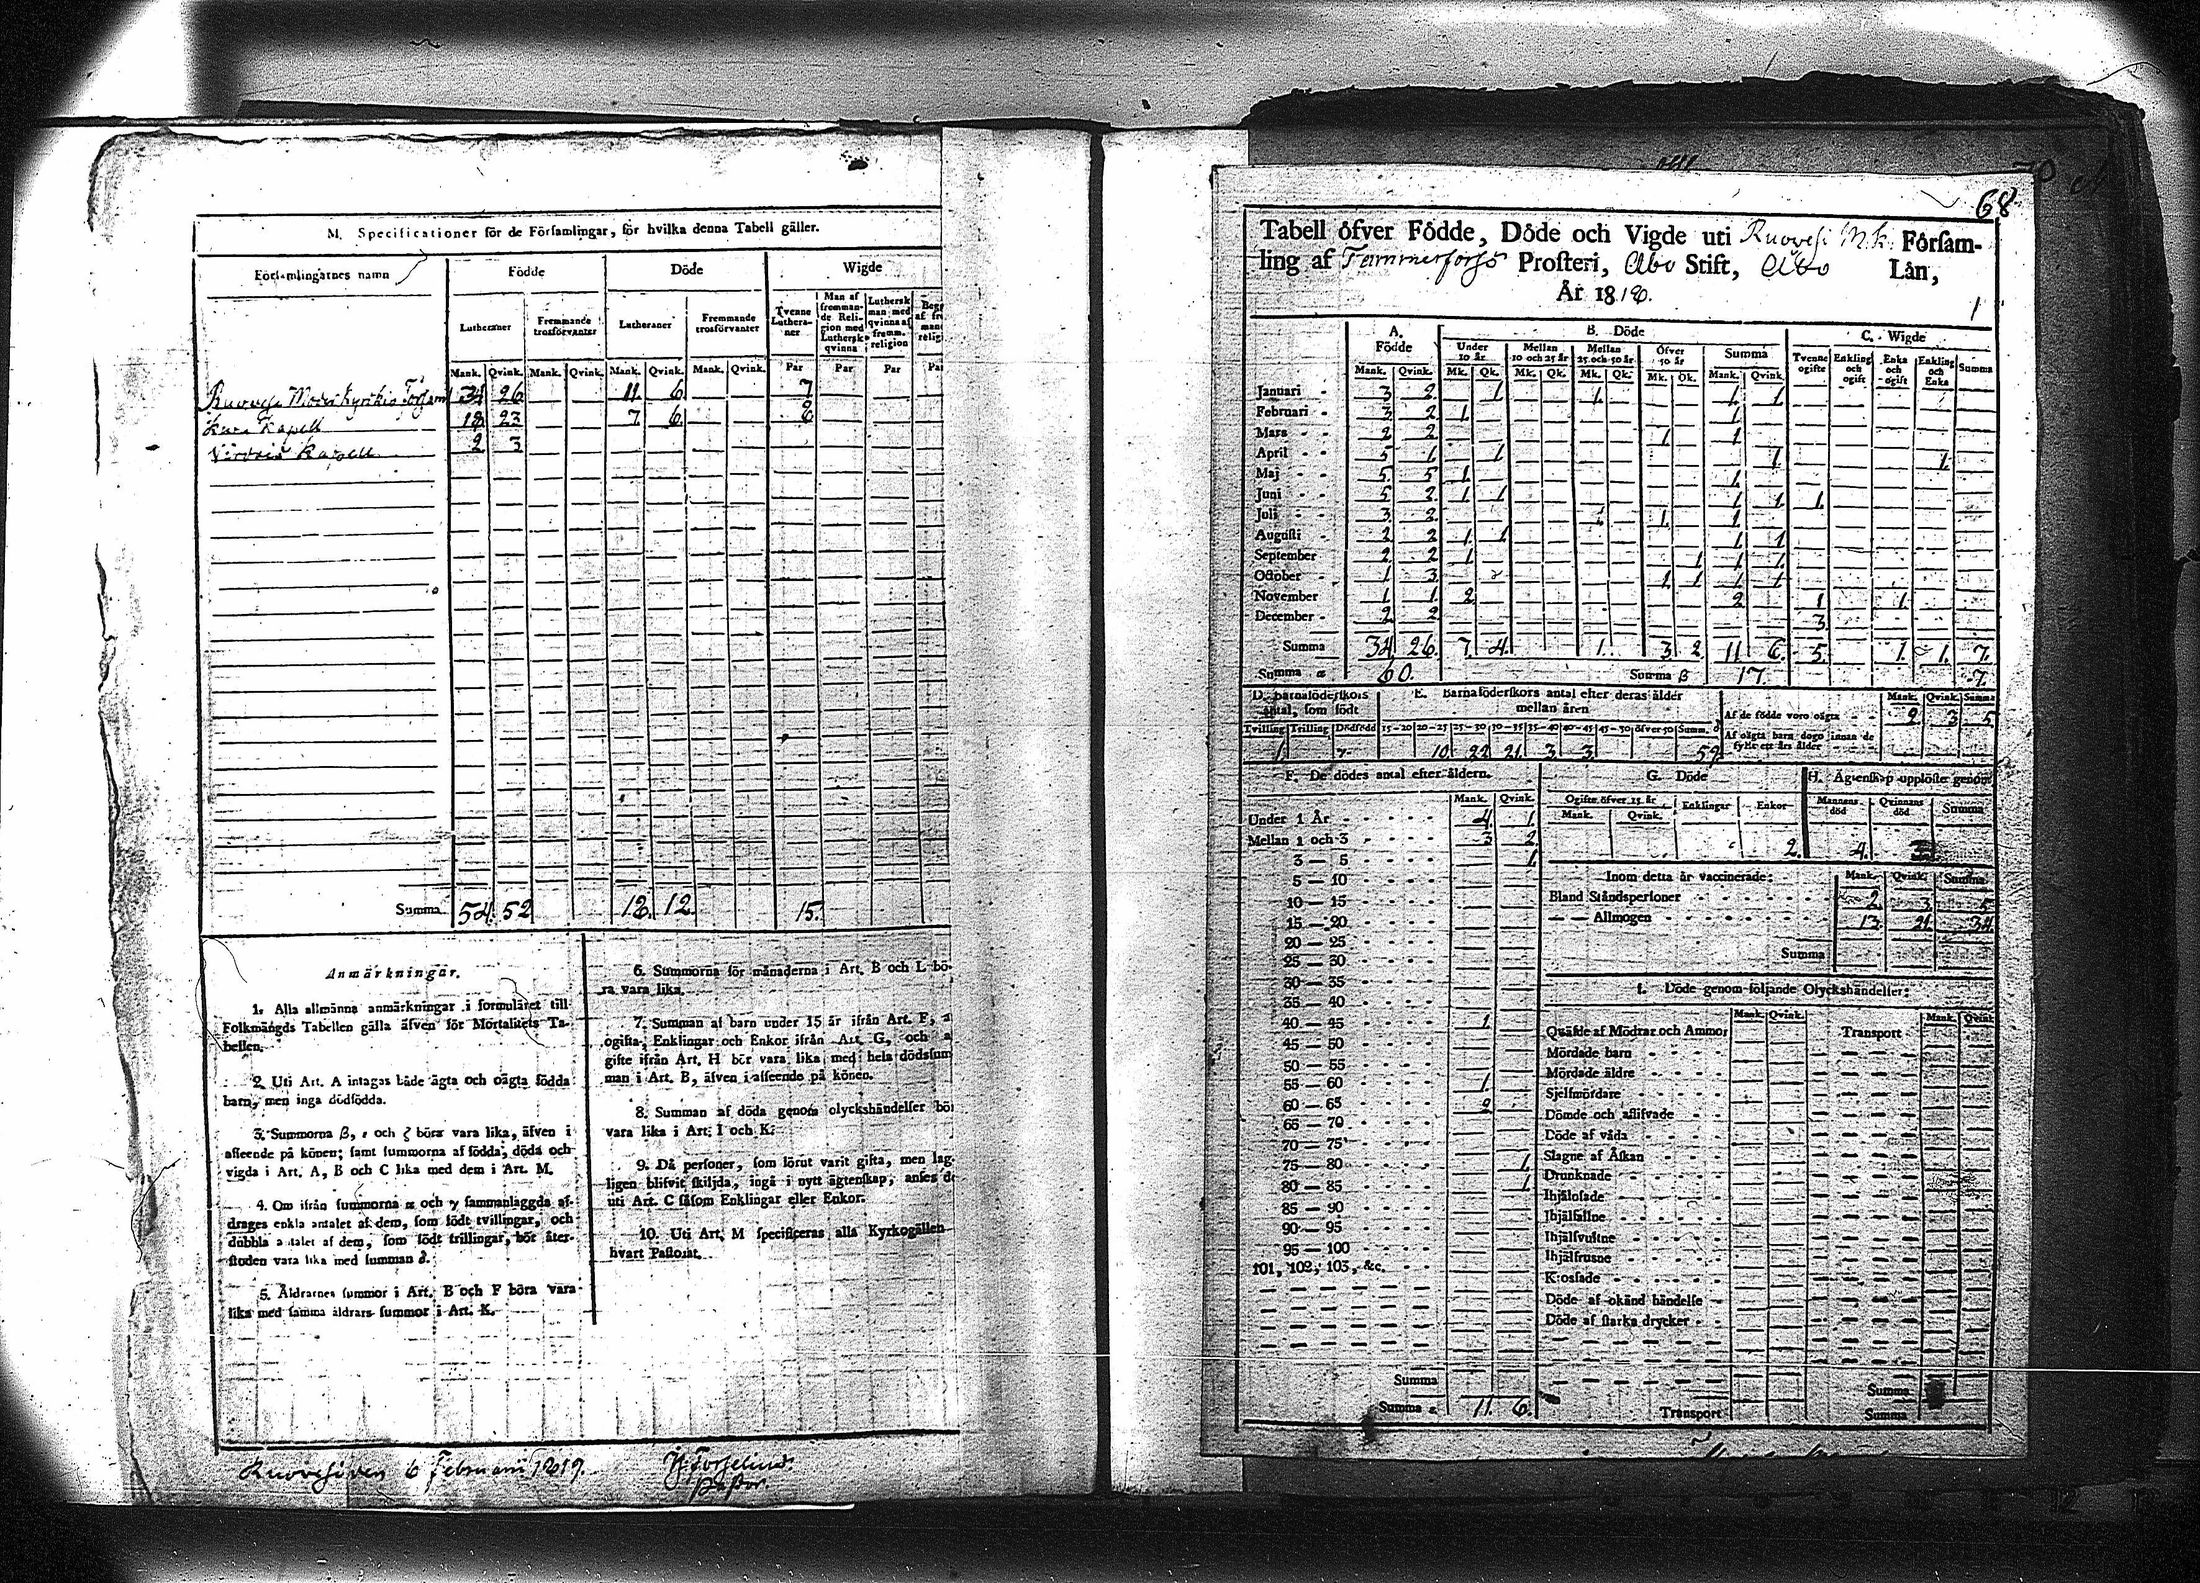 M. Specificationer för de Församlingar, för hvilka denna Tabell gäller.
Församlingarnes namn
Födde
Döde
Wigde
Lutheraner
Fremmande trosförvanter
Lutheraner
Fremmande trosförvanter
Tvenne Lutheraner
Man af fremmande Religion med Luthersk qvinna
Luthersk man med qvinna af fremm. religion
Mank. Qvink. Mank. Qvink. Mank. Qvink. Mank. Qvink. Par Par Par
Ruovesi Moderkyrkis Församl 34 26 11. 6. 7
Kuru Kapell 18. 23 7. 6. 8
Virdois Kapell 2 3
Summa 54. 52 18. 12. 15.
Anmärkningar.
1. Alla allmänna anmärkningar i formuläret till
Folkmängds Tabellen gälla äfven för Mortalitets Ta-
bellen.
2. Uti Art. A intagas både ägta och oägta födda
barn, men inga dödfödda.
3. Summorna β, ε och ζ böra vara lika, äfven i
afseende på könen; samt summorna af födda, döda och
vigda i Art. A, B och C lika med dem i Art. M.
4. Om ifrån summorna α och γ sammanlaggda af-
drages enkla antalet af dem, som födt tvillingar, och
dubbla antalet af dem, som födt trillingar, bör åter-
stoden vara lika med summan δ.
5. Åldrarnes summor i Art. B och F böra vara
lika med samma åldrars summor i Art. K.
6. Summorna för månaderna i Art. B och L bö-
ra vara lika.
7. Summan af barn under 15 år ifrån Art. F,
ogifta, Enklingar och Enkor ifrån Art. G, och
gifte ifrån Art. H bör vara lika med hela dödssum
man i Art. B, äfven i afseende på könen.
8. Summan af döda genom olyckshändelser bör
vara lika i Art. I och K.
9. Då personer, som förut varit gifta, men lag-
ligen blifvit skiljda, ingå i nytt ägtenskap, anses de
uti Art. C såsom Enklingar eller Enkor.
10. Uti Art. M specificeras alla Kyrkogällen
hvart Pastorat.
Ruovesi den 6 Februarii 1819.
Pastor.
68
Tabell öfver Födde, Döde och Vigde uti Ruovesi M.k. Församling af Tammerfors Prosteri, Åbo Stift, Åbo Län,
År 1818.
1
A. Födde
B. Döde
C. Wigde
Under 10 år
Mellan 10 och 25 år
Mellan 25 och 50 år
Öfver 50 år
Summa
Tvenne ogifte
Enkling och ogift
Enka och ogift
Enkling och Enka
Summa
Mank. Qvink. Mk. Qk. Mk. Qk. Mk. Qk. Mk. Qk. Mank. Qvink
Januari 3 2 1 1. 1 1
Februari 3 2 1. 1
Mars 2 2 1. 1
April 5 1 1 1. 1.
Maj 5. 5 1. 1
Juni 5 2 1. 1 1 1 1.
Juli 3 2 1. 1
Augusti 2 2 1. 1 1 1
September 2 2 1. 1 1 1
October 1 3 1 1 1 1
November 1 1 2 2 1 1.
December 2 2 3
Summa 34 26. 7. 4. 1. 3 2 11 6. 5. 1. 1. 7.
Summa α 60. Summa β 17. 7.
D. Barnaföderskors antal, som födt
E. Barnaföderskors antal efter deras ålder mellan åren
Mank. Qvink. Summa
Tvilling Trilling Dödfödd 15-20 20-25 25-30 30-35 35-40 40-45 45-50 öfver 50 Summ. δ
1. 10. 22 21. 3 3. 59.
Af de födde voro oägta 2 3 5
Af oägta barn dogo innan de fyllt ett års ålder
F. De dödes antal efter åldern.
Mank. Qvink.
Under 1 År 4 1.
Mellan 1 och 3 3 2
3 — 5 1.
5 — 10
10 — 15
15 — 20
20 — 25
25 — 30
30 — 35
35 — 40
40 — 45 1
45 — 50
50 — 55
55 — 60 1.
60 — 65 2
65 — 70
70 — 75
75 — 80 1.
80 — 85 1
85 — 90
90 — 95
95 — 100
101, 102, 103, &c.
Summa
Summa ε 11. 6.
G. Döde
Ogifte öfver 15 år
Enklingar
Enkor
Mank. Qvink.
2.
H. Ägtenskap upplöste genom
Mannens död
Qvinnans död
Summa
4.
Inom detta år vaccinerade: Mank. Qvink. Summa
Bland Ståndspersoner 2. 3 5
— — Allmogen 13. 21 34
Summa
I. Döde genom följande Olyckshändelser:
Mank. Qvink. Mank. Qvink
Quäfde af Mödrar och Ammor Transport
Mördade barn
Mördade äldre
Sjelfmördare
Dömde och aflifvade
Döde af våda
Slagne af Åskan
Drunknade
Ihjälosade
Ihjälfallne
Ihjälsvultne
Ihjälfrusne
Krossade
Döde af okänd händelse
Döde af starka drycker
Summa
Transport Summa